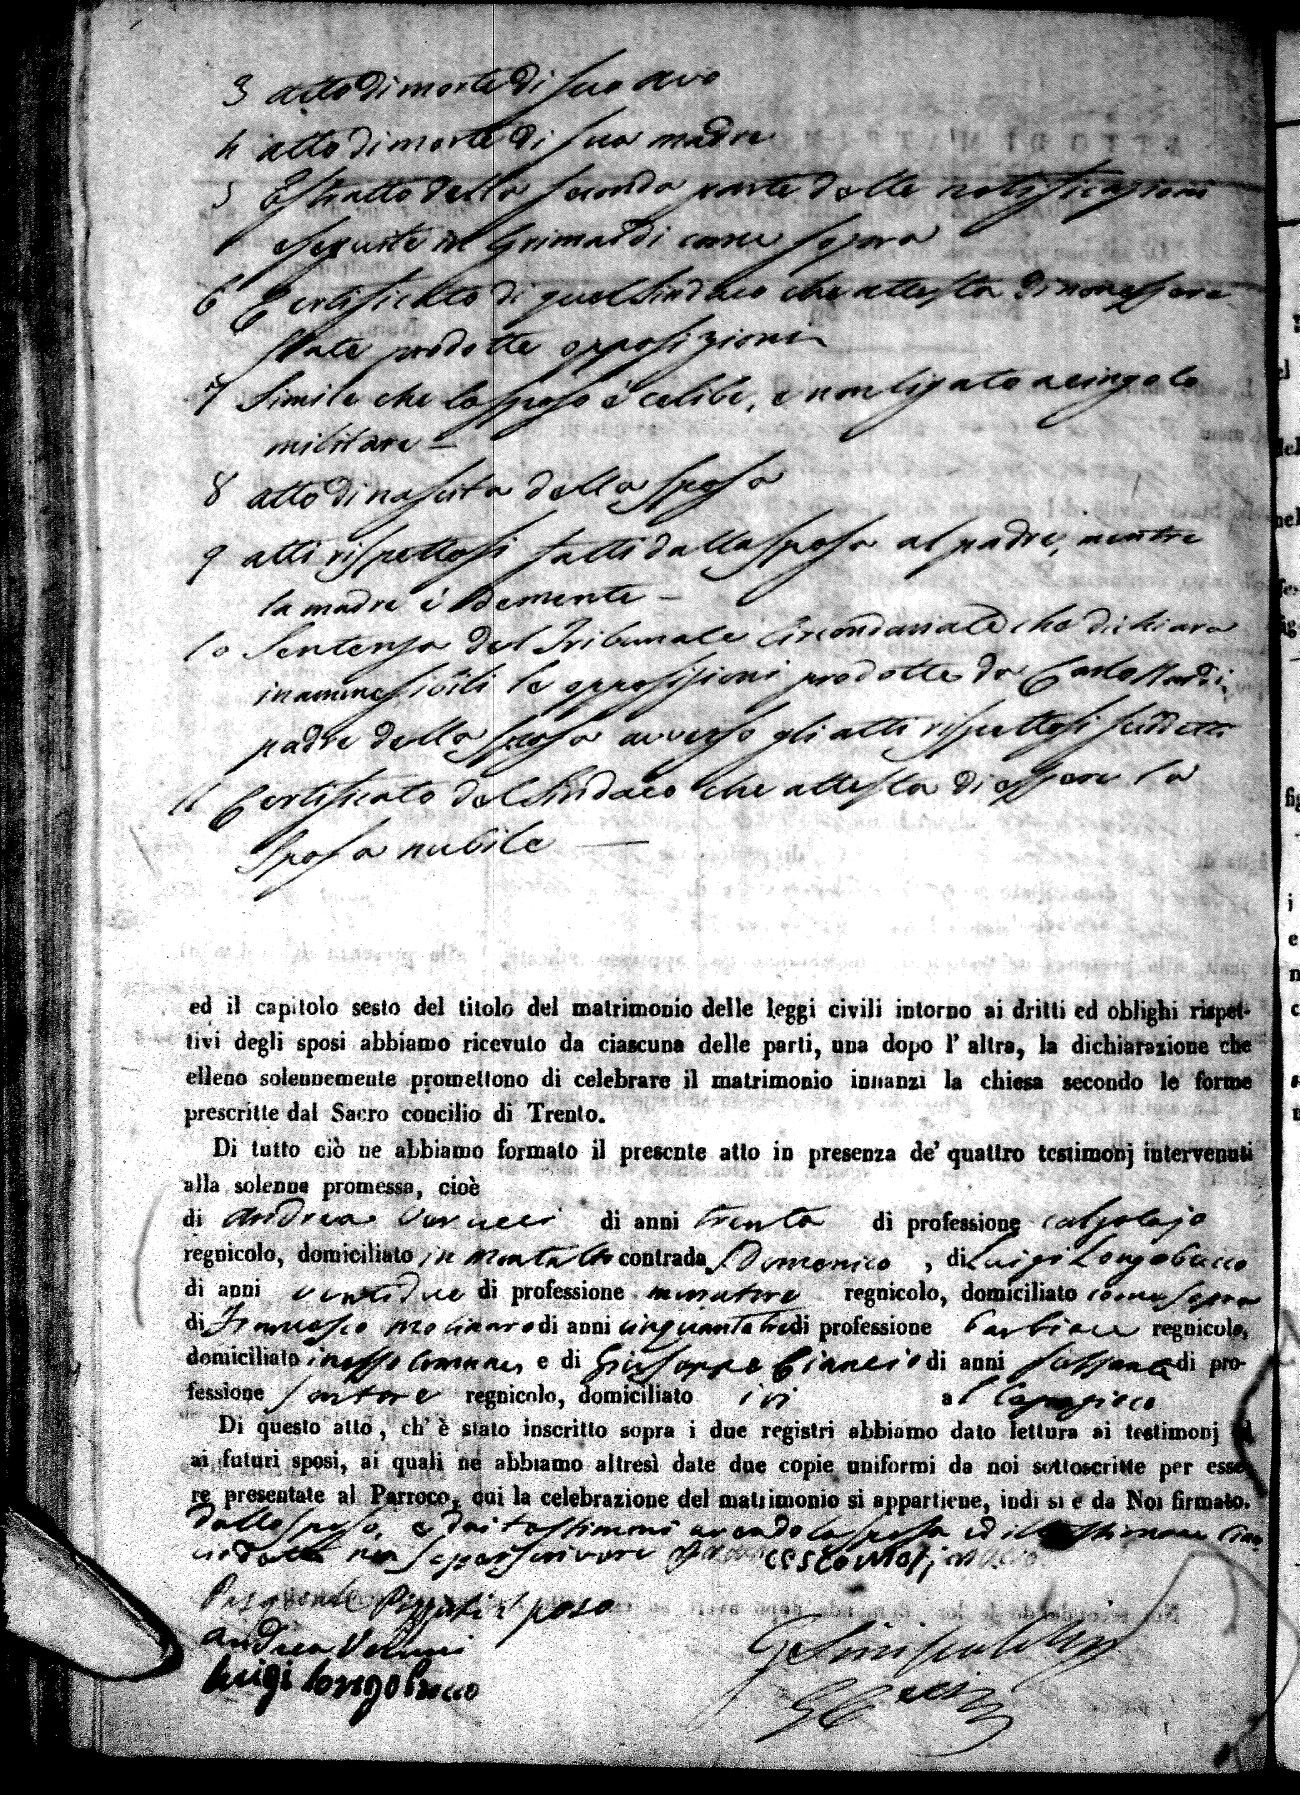 3 atto di morte di suo avo
4 atto di morte di sua madre
5 Estratto della seconda parte delle notificazioni
eseguite in Grimaldi come sopra
6 Certificato di quel Sindaco che attesta di non essere
state prodotte opposizioni
7 Simile che lo sposo è celibe, e non ligato a cingolo
militare —
8 atto di nascita della sposa
9 atti rispettosi fatti dalla sposa al padre, mentre
la madre è demente —
10 Sentenza del Tribunale Circondariale che dichiara
inammessibili le opposizioni prodotte da Carlo Nardi,
padre della sposa avverso gli atti rispettosi suddetti
11 Certificato del Sindaco che attesta di essere la
sposa nubile —
ed il capitolo sesto del titolo del matrimonio delle leggi civili intorno ai dritti ed oblighi rispet-
tivi degli sposi abbiamo ricevuto da ciascuna delle parti, una dopo l' altra, la dichiarazione che
elleno solennemente promettono di celebrare il matrimonio innanzi la chiesa secondo le forme
prescritte dal Sacro concilio di Trento.
Di tutto ciò ne abbiamo formato il presente atto in presenza de' quattro testimonj intervenuti
alla solenne promessa, cioè
di Andrea di anni trenta di professione calzolajo
regnicolo, domiciliato in Montalto contrada S. Domenico, di Luigi Longobucco
di anni ventidue di professione muratore regnicolo, domiciliato come sopra
di Francesco Molinaro di anni cinquantatre di professione barbiere regnicolo,
domiciliato in esso comune, e di Giuseppe Ciancio di anni sessanta di pro-
fessione sartore regnicolo, domiciliato ivi al
Di questo atto, ch' è stato inscritto sopra i due registri abbiamo dato lettura ai testimonj ed
ai futuri sposi, ai quali ne abbiamo altresì date due copie uniformi da noi sottoscritte per esse-
re presentate al Parroco, cui la celebrazione del matrimonio si appartiene, indi si è da Noi firmato.
dallo sposo, e dai testimoni avendo la sposa ed il testimone Cian
cio detto non saper scrivere
Pasquale sposo
Andrea
Luigi Longobucco